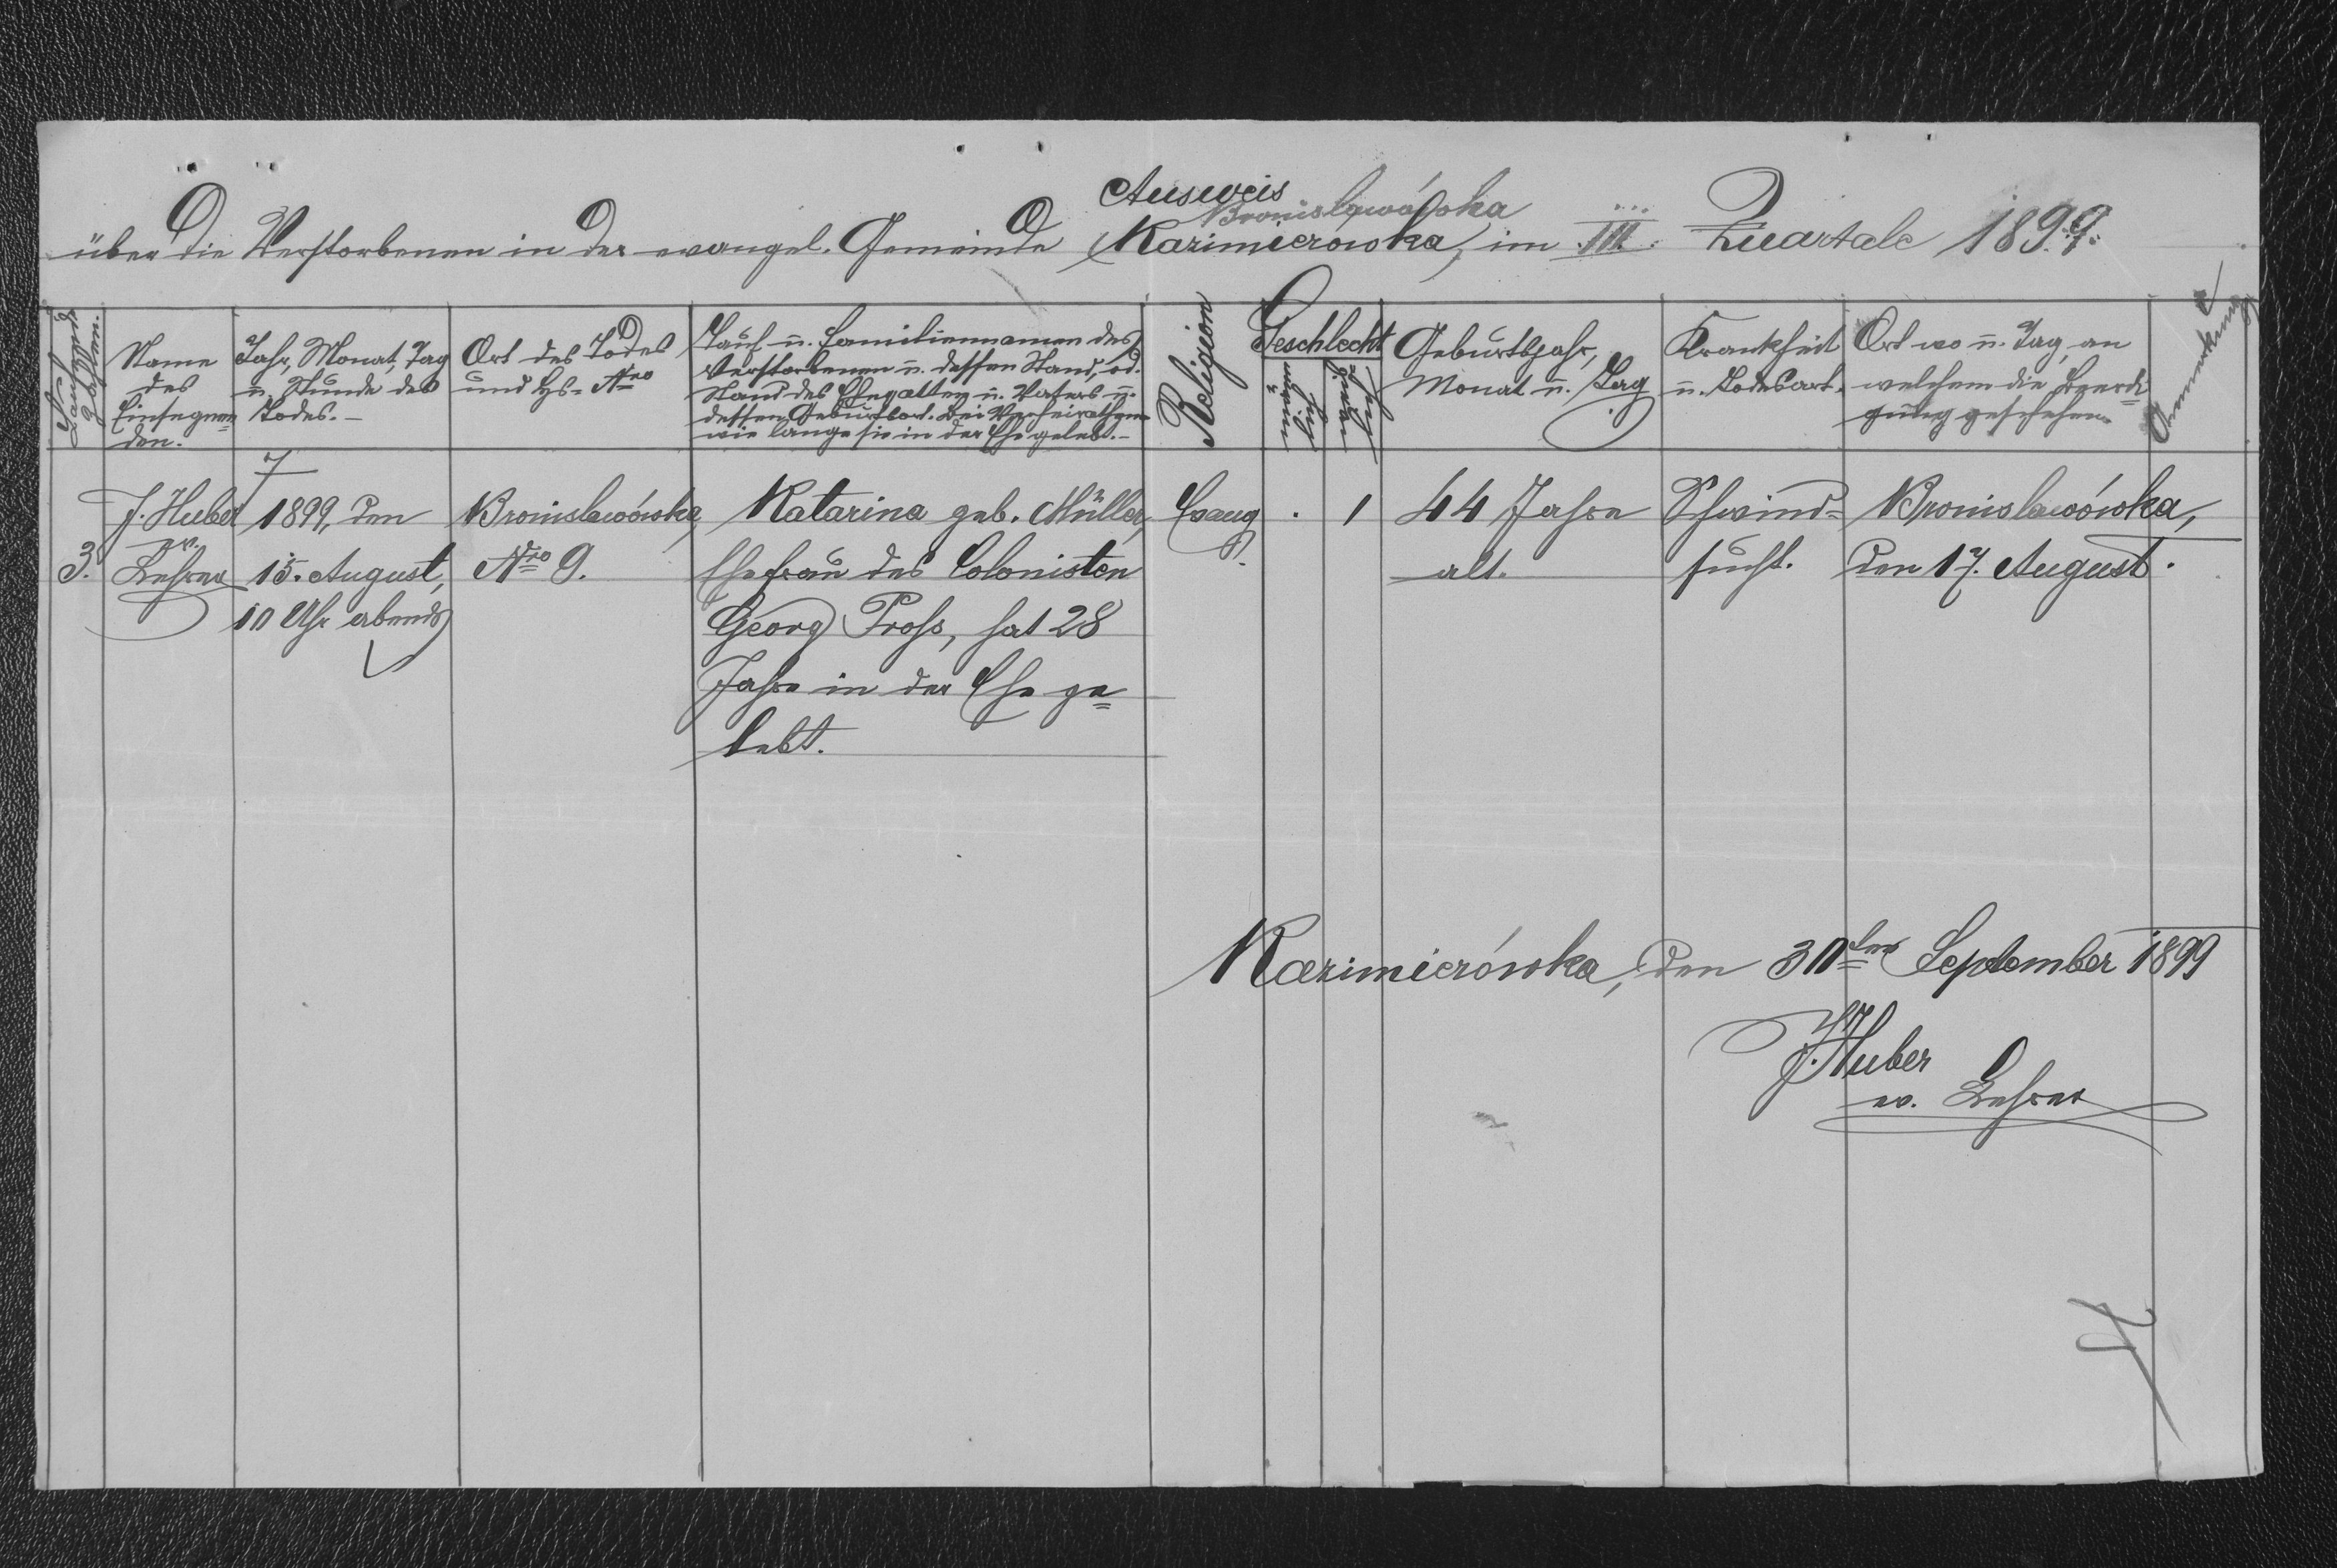 Ausweis
Bronislawówka
über die Verstorbenen in der evangel. Gemeinde Kazimierówka, im III. Quartale 1899.
Laufende Zahlen.
Name
des
Einsegnen=
den.
Jahr, Monat, Tag
u. Stunde des
Todes.-
Ort des Todes
und Hs= Nro
Tauf- u. Familiennamen des
Verstorbenen u. dessen Stand, od.
Stand des Ehegatten u. Vaters u.
dessen Geburtsort. Bei Verheiratheten
wie lange sie in der Ehe gelebt.-
Religion
Geschlecht
männ
lich
weib
lich
Geburtsjahr,
Monat u. Tag
Krankheit
u. Todesart.
Ort wo u. Tag, an
welchem die Beerdi=
gung geschehen.
Anmerkung
3.
J. Huber
ev.
Lehrer
1899, den
15. August,
10 Uhr abends
Bronislawówka,
Nro 9.
Katarina geb. Müller,
Ehefrau des Colonisten
Georg Pross, hat 28
Jahre in der Ehe ge=
lebt.
Evang.
1
44 Jahre
alt.
Schwind=
sucht.
Bronislawówka,
den 17. August.
Kazimierówka, den 30ten September 1899
J. Huber
ev. Lehrer